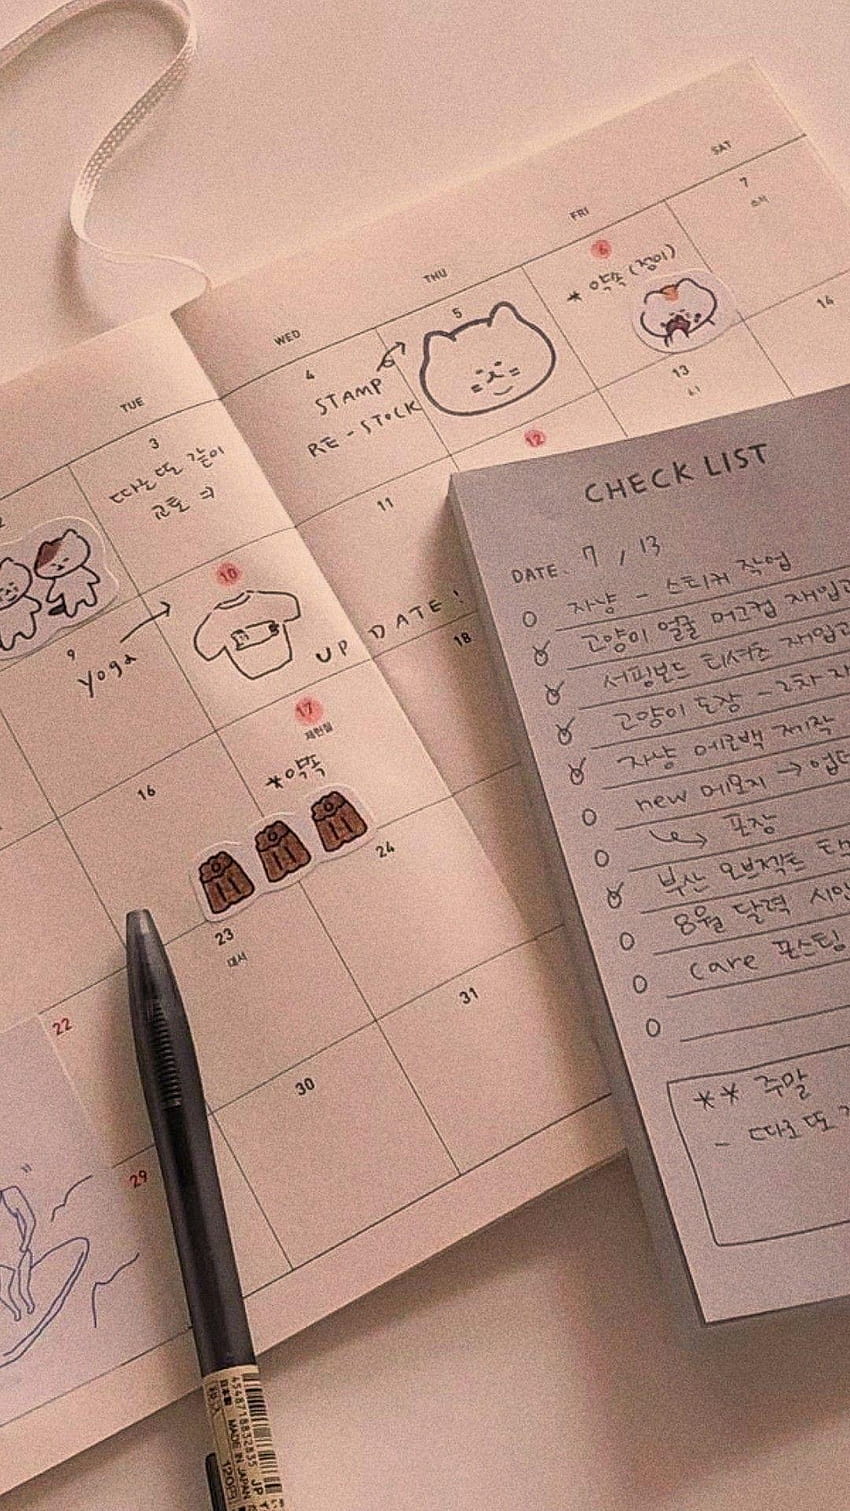 TUE
WED
THU
FRI
SAT
3
따로 또 같이
4
STAMP
RE-STOCK
5
6
* 약속 (정이)
7
소서
9
Yoga
10
UPDATE!
11
12
13
14
16
17
제헌절
*약속
18
22
23
대서
24
29
30
31
CHECK LIST
DATE. 7 / 13
자낭 - 스티커 작업
고양이 얼굴 머그컵
서핑보드 티셔츠
고양이 도장 - 2차
자낭 에코백 제작
new 메모지 →
포장
부산 오브젝트
8월 달력 시안
Care 포스팅
** 주말
- 따로 또
4548718832835
日本製
MADE IN JAPAN
120円